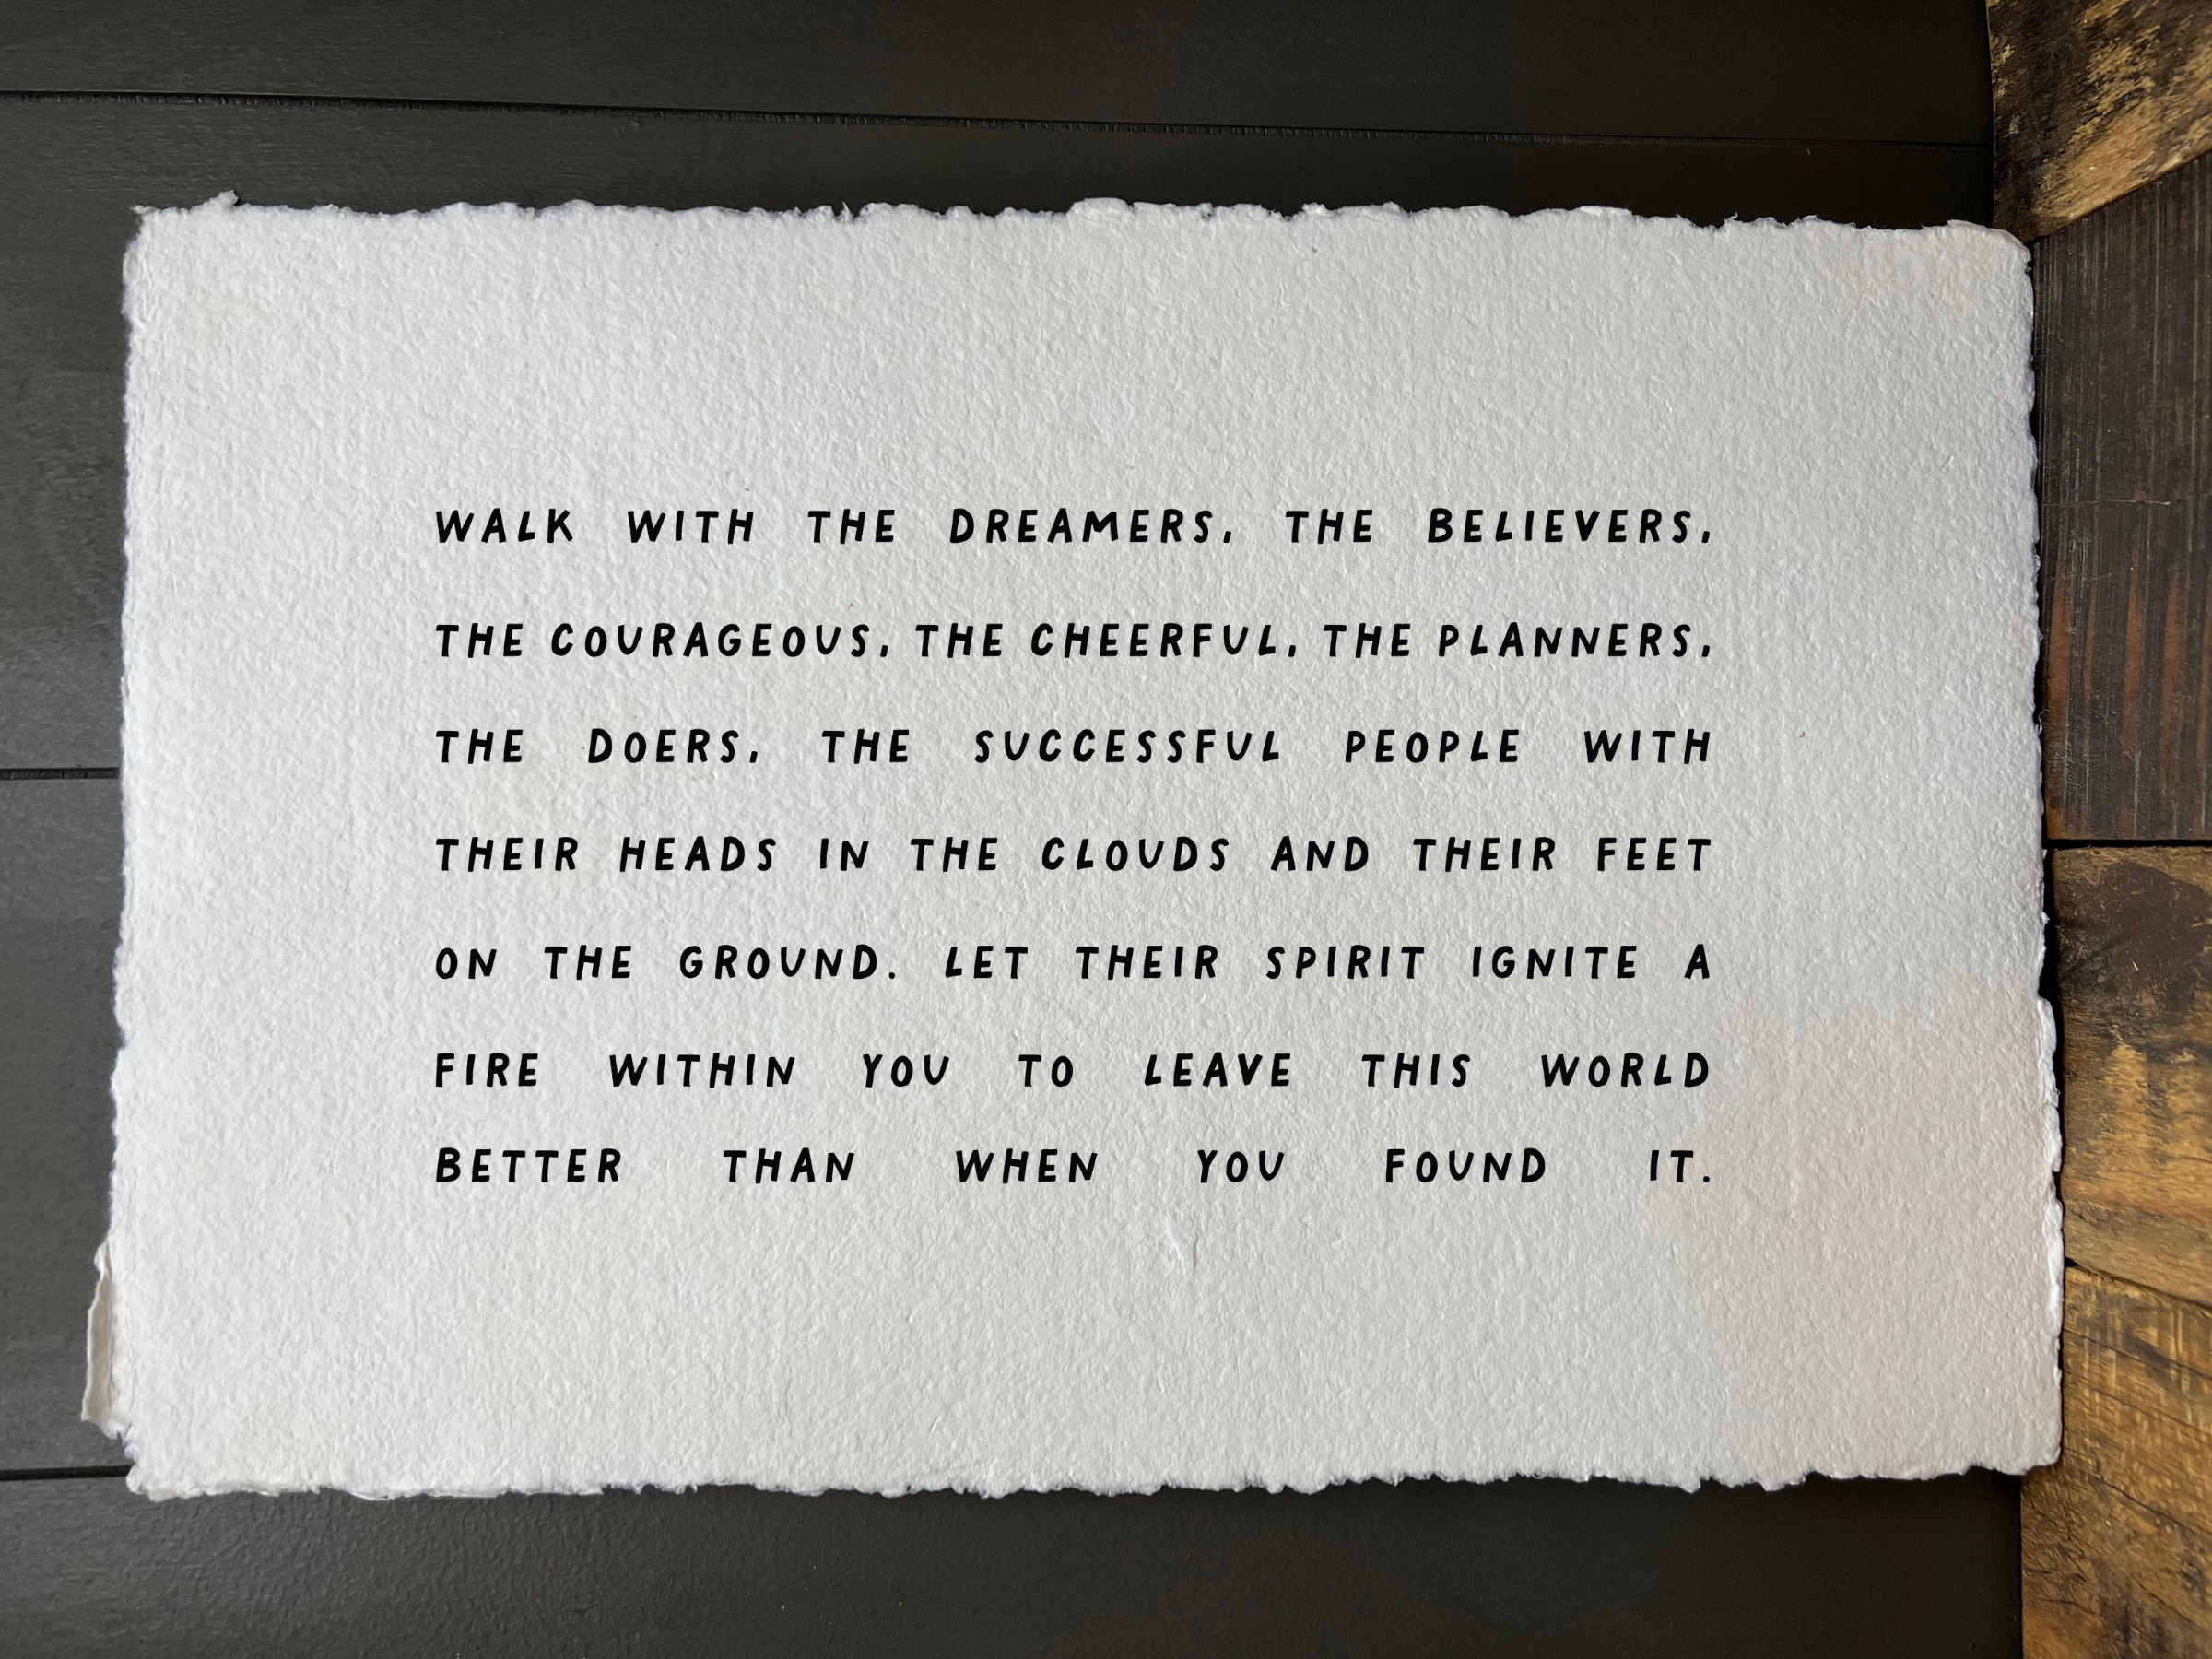 WALK WITH THE DREAMERS, THE BELIEVERS,
THE COURAGEOUS, THE CHEERFUL, THE PLANNERS,
THE DOERS, THE SUCCESSFUL PEOPLE WITH
THEIR HEADS IN THE CLOUDS AND THEIR FEET
ON THE GROUND. LET THEIR SPIRIT IGNITE A
FIRE WITHIN YOU TO LEAVE THIS WORLD
BETTER THAN WHEN YOU FOUND IT.